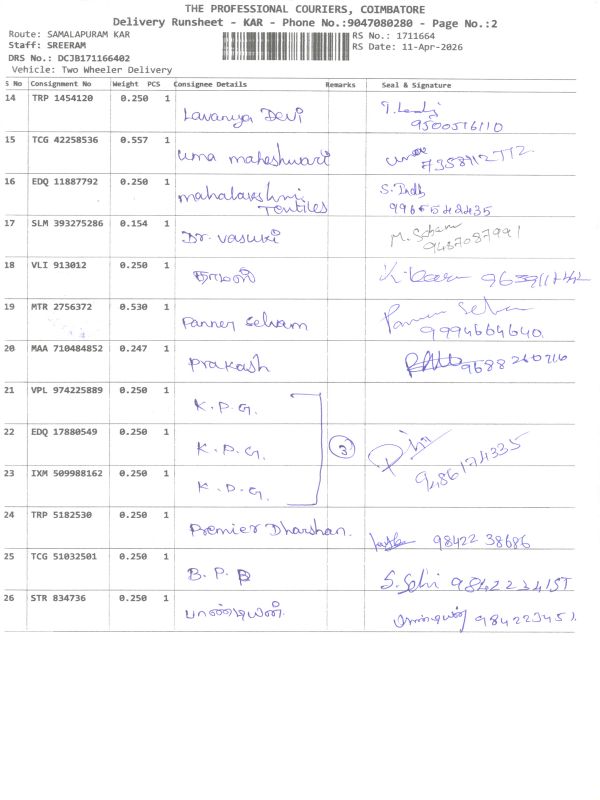 THE PROFESSIONAL COURIERS, COIMBATORE
Delivery Runsheet - KAR - Phone No.:9047080280 - Page No.:2
Route: SAMALAPURAM KAR
RS No.: 1711664
Staff: SREERAM
RS Date: 11-Apr-2026
DRS No.: DCJB171166402
Vehicle: Two Wheeler Delivery
S No Consignment No Weight PCS Consignee Details Remarks Seal & Signature
14 TRP 1454120 0.250 1 Lavanya Devi
9500516110
15 TCG 42258536 0.557 1 uma maheshwari uma
7358912772
16 EDQ 11887792 0.250 1 mahalakshmi Textiles
17 SLM 393275286 0.154 1 Dr. vasuki
9487087991
18 VLI 913012 0.250 1
19 MTR 2756372 0.530 1 Panner Selvam
9994664640
20 MAA 710484852 0.247 1 Prakash 9688260216
21 VPL 974225889 0.250 1 K.P.G.
22 EDQ 17880549 0.250 1 K.P.G. 3
23 IXM 509988162 0.250 1 K.P.G.
9486174335
24 TRP 5182530 0.250 1 Premier Dharshan. 98422 38686
25 TCG 51032501 0.250 1 B.P.P
26 STR 834736 0.250 1 பாண்டியன்.